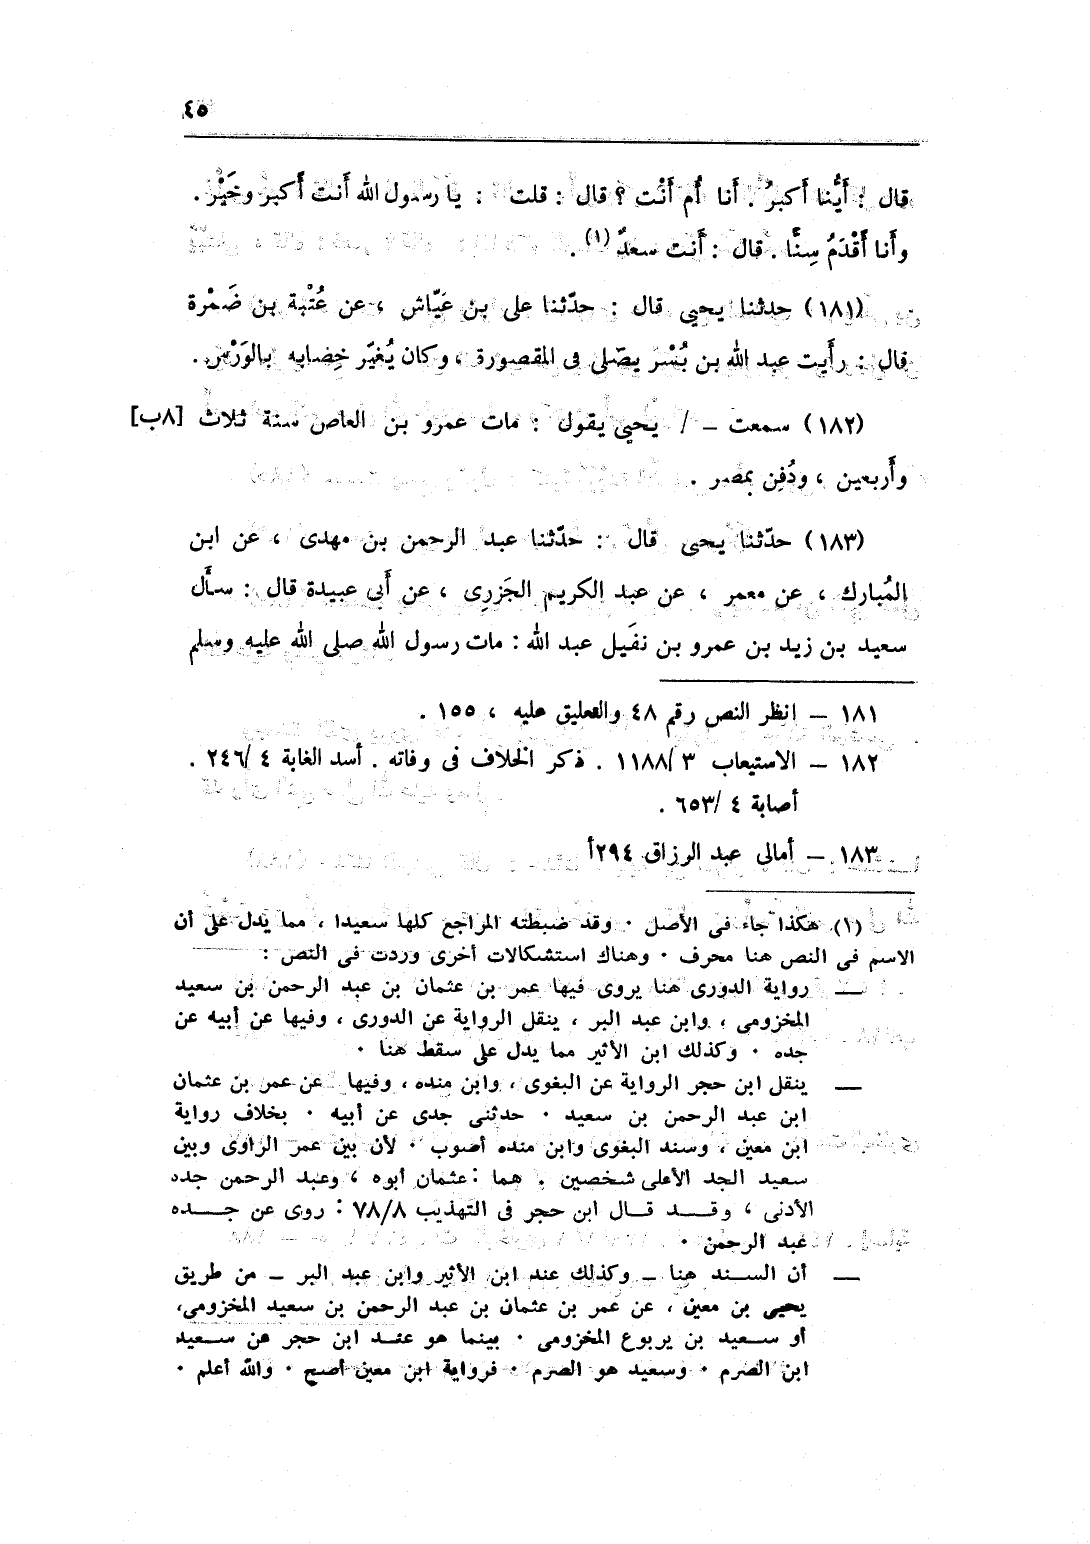 ٤٥
قال : أَيُّنا أَكبرُ . أَنا أُم أَنْت ؟ قال : قلت : يا رسول الله أَنت أَكبر وخَيْر .
وأَنا أَقْدَمُ سِنًّا . قال : أَنت سعدٌ (١) .
(١٨١) حدثنا يحيى قال : حدّثنا على بن عَيّاش ، عن عُتْبة بن ضَمْرة
قال : رأَيت عبد الله بن بُسْر يصّلى فى المقصورة ، وكان يُغيّر خِضابه بالوَرْس .
(١٨٢) سمعت – / يحيى يقول : مات عمرو بن العاص سنة ثلاث [٨ب]
وأَربعين ، ودُفِن بمصر .
(١٨٣) حدّثنا يحيى قال : حدّثنا عبد الرحمن بن مهدى ، عن ابن
المُبارك ، عن معمر ، عن عبد الكريم الجَزرِى ، عن أَبى عبيدة قال : سأَل
سعيد بن زيد بن عمرو بن نفَيل عبد الله : مات رسول الله صلى الله عليه وسلم
١٨١ – انظر النص رقم ٤٨ والتعليق عليه ، ١٥٥ .
١٨٢ – الاستيعاب ٣ /١١٨٨ . ذكر الخلاف فى وفاته . أسد الغابة ٤ /٢٤٦ .
أصابة ٤ /٦٥٣ .
١٨٣ – أمالى عبد الرزاق ٢٩٤أ
(١) هكذا جاء فى الأصل ٠ وقد ضبطته المراجع كلها سعيدا ، مما يدل على أن
الاسم فى النص هنا محرف ٠ وهناك استشكالات أخرى وردت فى النص :
— رواية الدورى هنا يروى فيها عمر بن عثمان بن عبد الرحمن بن سعيد
المخزومى ، وابن عبد البر ، ينقل الرواية عن الدورى ، وفيها عن أبيه عن
جده ٠ وكذلك ابن الأثير مما يدل على سقط هنا ٠
— ينقل ابن حجر الرواية عن البغوى ، وابن منده ، وفيها عن عمر بن عثمان
ابن عبد الرحمن بن سعيد ٠ حدثنى جدى عن أبيه ٠ بخلاف رواية
ابن معين ، وسند البغوى وابن منده أصوب ٠ لأن بين عمر الراوى وبين
سعيد الجد الأعلى شخصين . هما : عثمان أبوه ، وعبد الرحمن جده
الأدنى ، وقد قال ابن حجر فى التهذيب ٧٨/٨ : روى عن جده
عبد الرحمن ٠
— أن السند هنا – وكذلك عند ابن الأثير وابن عبد البر – من طريق
يحيى بن معين ، عن عمر بن عثمان بن عبد الرحمن بن سعيد المخزومى،
أو سعيد بن يربوع المخزومى ٠ بينما هو عند ابن حجر عن سعيد
ابن الصرم ٠ وسعيد هو الصرم ٠ فرواية ابن معين أصح ٠ والله أعلم ٠